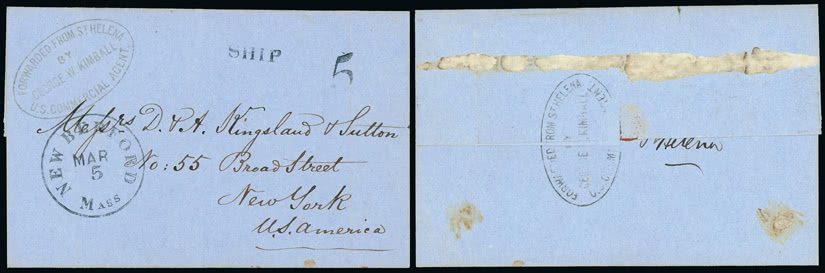 FORWARDED FROM ST HELENA
BY
GEORGE W. KIMBALL
U.S. COMMERCIAL AGENT.
SHIP
5
NEW BEDFORD
MAR
5
MASS
Messrs D. & A. Kingsland & Sutton
No: 55 Broad Street
New York
U.S. America
FORWARDED FROM ST HELENA
BY
KIMBALL
St Helena